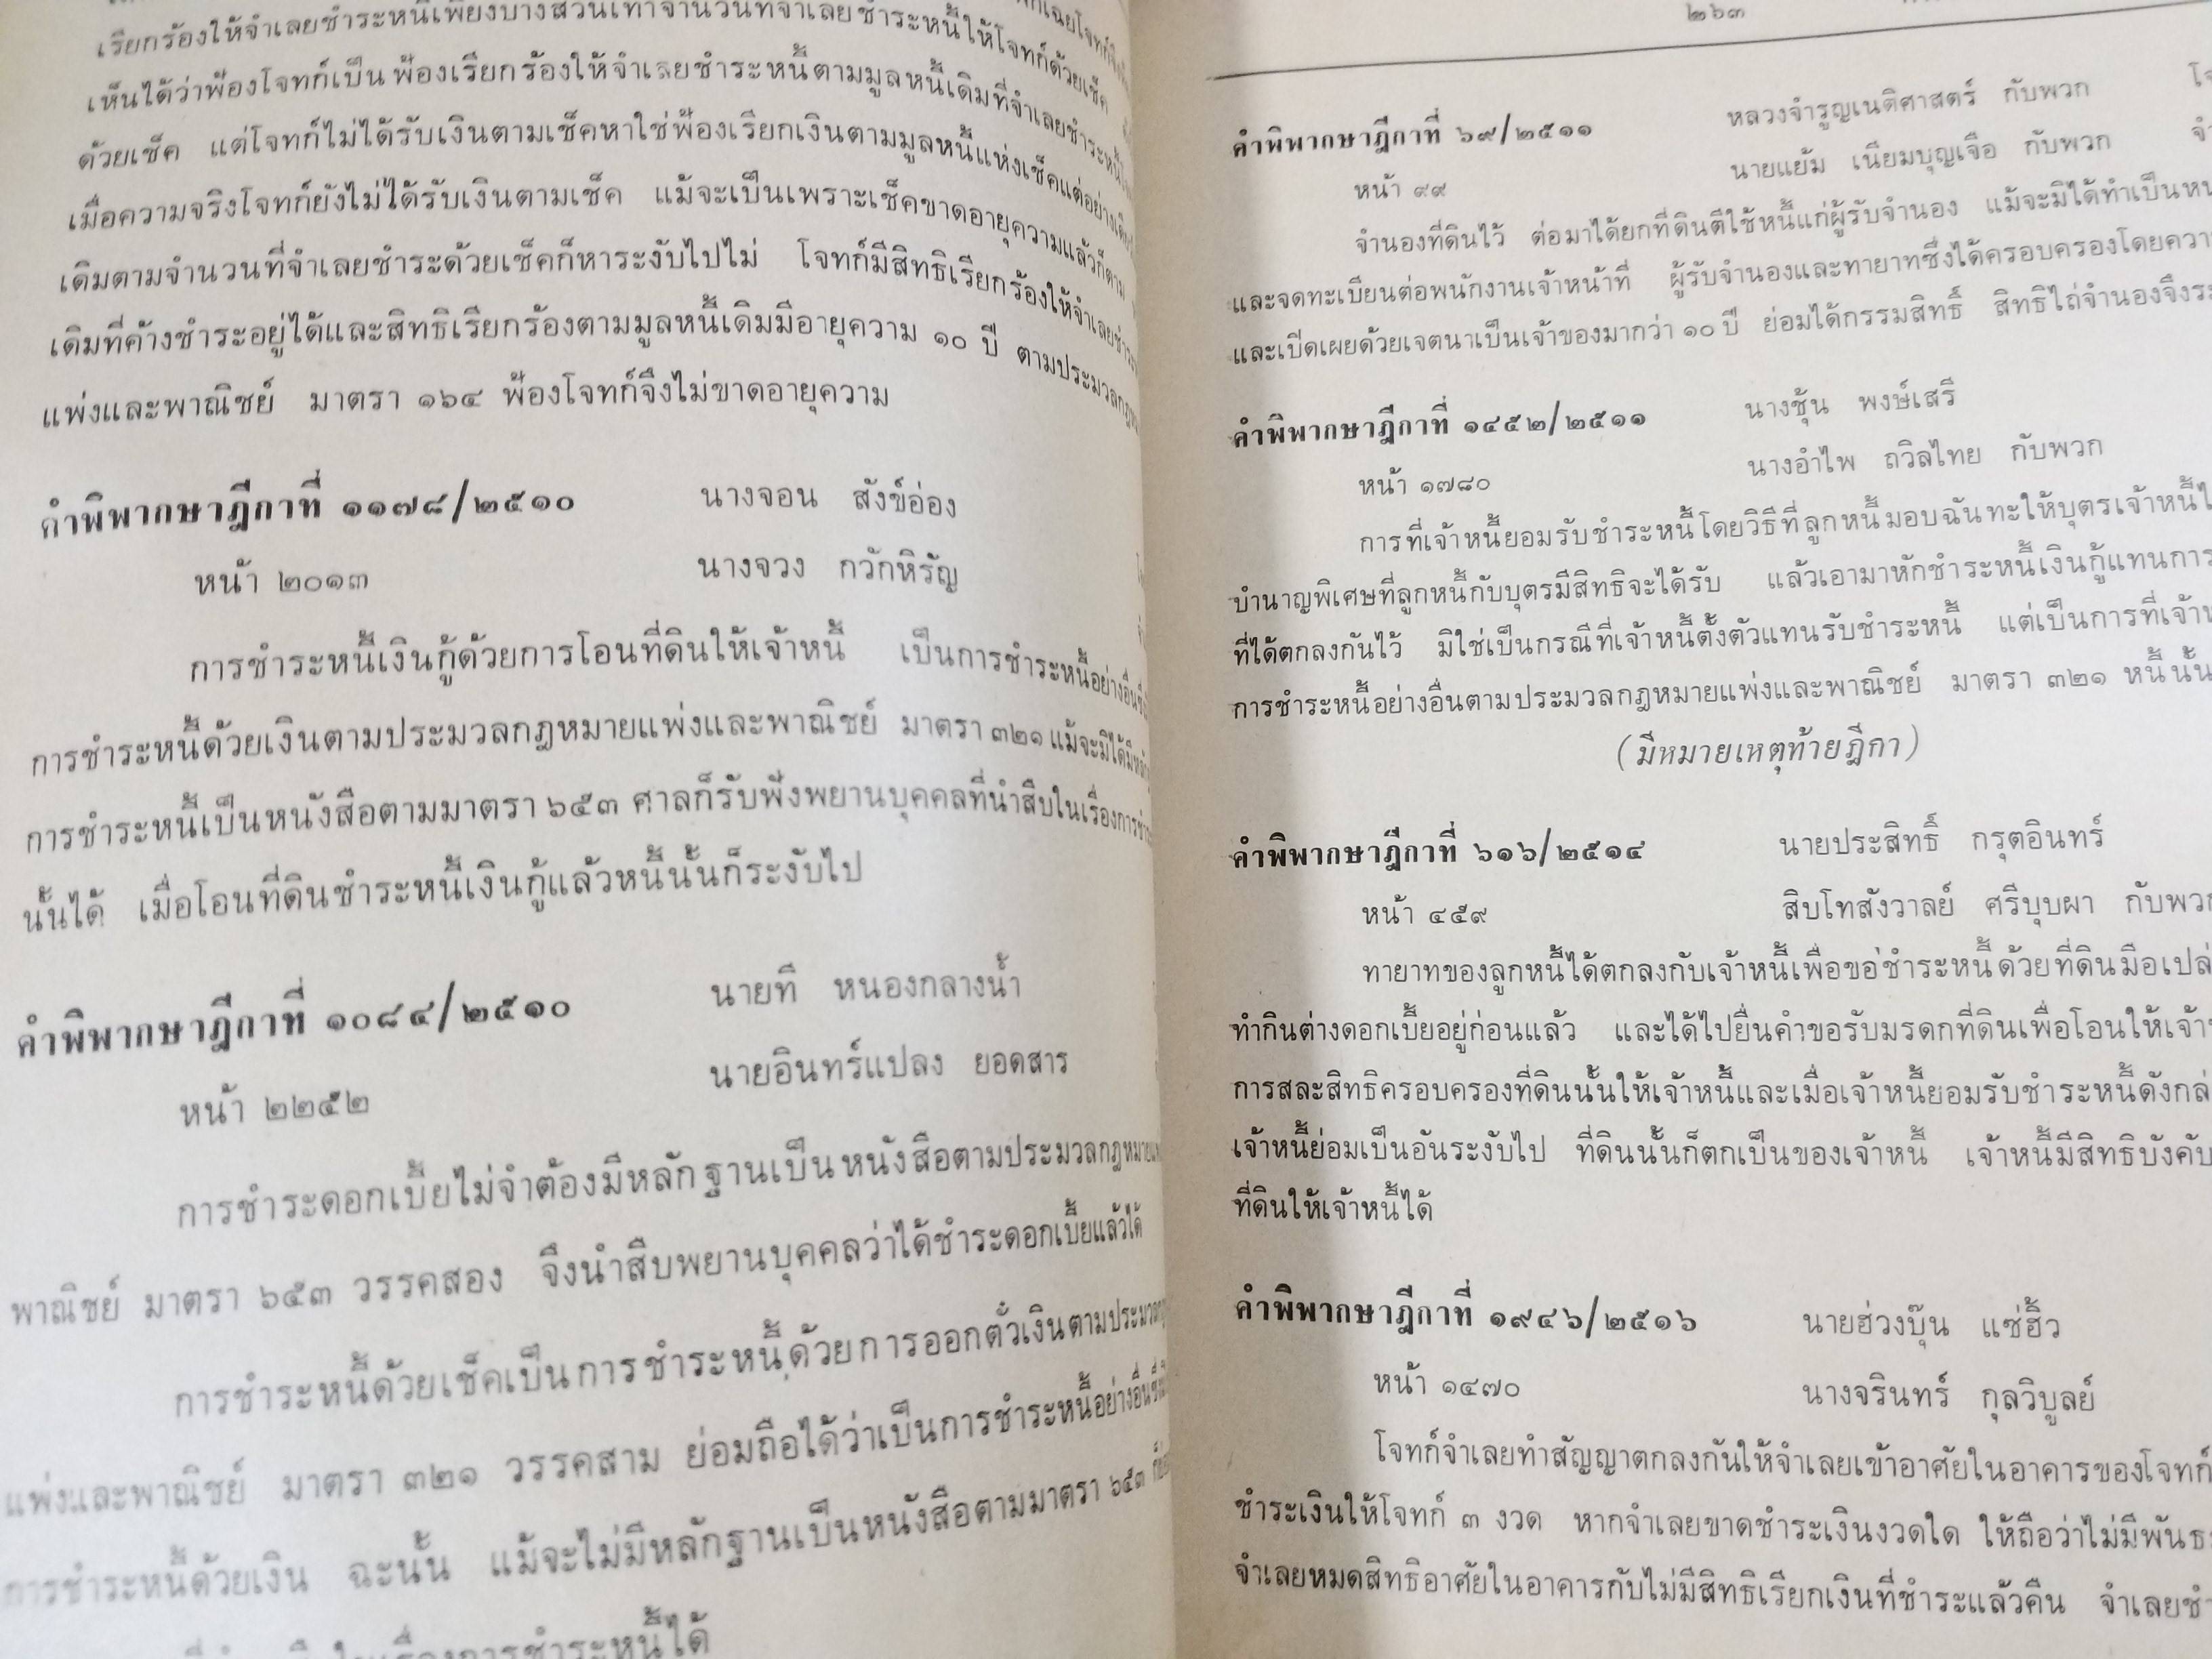 เรียกร้องให้จำเลยชำระหนี้เพียงบางส่วนเท่าจำนวนที่จำเลยชำระหนี้ให้โจทก์ด้วยเช็ค
เห็นได้ว่าฟ้องโจทก์เป็นฟ้องเรียกร้องให้จำเลยชำระหนี้ตามมูลหนี้เดิมที่จำเลยชำระหนี้
ด้วยเช็ค แต่โจทก์ไม่ได้รับเงินตามเช็คหาใช่ฟ้องเรียกเงินตามมูลหนี้แห่งเช็คแต่อย่างเดียว
เมื่อความจริงโจทก์ยังไม่ได้รับเงินตามเช็ค แม้จะเป็นเพราะเช็คขาดอายุความแล้วก็ตาม
เดิมตามจำนวนที่จำเลยชำระด้วยเช็คก็หาระงับไปไม่ โจทก์มีสิทธิเรียกร้องให้จำเลยชำระ
เดิมที่ค้างชำระอยู่ได้และสิทธิเรียกร้องตามมูลหนี้เดิมมีอายุความ ๑๐ ปี ตามประมวลกฎ
แพ่งและพาณิชย์ มาตรา ๑๖๔ ฟ้องโจทก์จึงไม่ขาดอายุความ
คำพิพากษาฎีกาที่ ๑๑๗๘/๒๕๑๐ นางจอน สังข์อ่อง
หน้า ๒๐๑๓ นางจวง กวักหิรัญ
การชำระหนี้เงินกู้ด้วยการโอนที่ดินให้เจ้าหนี้ เป็นการชำระหนี้อย่างอื่น
การชำระหนี้ด้วยเงินตามประมวลกฎหมายแพ่งและพาณิชย์ มาตรา ๓๒๑ แม้จะมิได้มี
การชำระหนี้เป็นหนังสือตามมาตรา ๖๕๓ ศาลก็รับฟังพยานบุคคลที่นำสืบในเรื่องการ
นั้นได้ เมื่อโอนที่ดินชำระหนี้เงินกู้แล้วหนี้นั้นก็ระงับไป
คำพิพากษาฎีกาที่ ๑๐๘๔/๒๕๑๐ นายที หนองกลางน้ำ
หน้า ๒๒๕๒ นายอินทร์แปลง ยอดสาร
การชำระดอกเบี้ยไม่จำต้องมีหลักฐานเป็นหนังสือตามประมวลกฎหมาย
พาณิชย์ มาตรา ๖๕๓ วรรคสอง จึงนำสืบพยานบุคคลว่าได้ชำระดอกเบี้ยแล้วได้
การชำระหนี้ด้วยเช็คเป็นการชำระหนี้ด้วยการออกตั๋วเงินตามประมวล
แพ่งและพาณิชย์ มาตรา ๓๒๑ วรรคสาม ย่อมถือได้ว่าเป็นการชำระหนี้อย่างอื่น
การชำระหนี้ด้วยเงิน ฉะนั้น แม้จะไม่มีหลักฐานเป็นหนังสือตามมาตรา ๖๕๓
ในเรื่องการชำระหนี้ได้
๒๖๓
คำพิพากษาฎีกาที่ ๖๙/๒๕๑๑ หลวงจำรูญเนติศาสตร์ กับพวก
หน้า ๙๙ นายแย้ม เนียมบุญเจือ กับพวก
จำนองที่ดินไว้ ต่อมาได้ยกที่ดินตีใช้หนี้แก่ผู้รับจำนอง แม้จะมิได้ทำเป็น
และจดทะเบียนต่อพนักงานเจ้าหน้าที่ ผู้รับจำนองและทายาทซึ่งได้ครอบครองโดย
และเปิดเผยด้วยเจตนาเป็นเจ้าของมากว่า ๑๐ ปี ย่อมได้กรรมสิทธิ์ สิทธิไถ่จำนองจึง
คำพิพากษาฎีกาที่ ๑๔๕๒/๒๕๑๑ นางชุ้น พงษ์เสรี
หน้า ๑๗๘๐ นางอำไพ ถวิลไทย กับพวก
การที่เจ้าหนี้ยอมรับชำระหนี้โดยวิธีที่ลูกหนี้มอบฉันทะให้บุตรเจ้าหนี้
บำนาญพิเศษที่ลูกหนี้กับบุตรมีสิทธิจะได้รับ แล้วเอามาหักชำระหนี้เงินกู้แทนการ
ที่ได้ตกลงกันไว้ มิใช่เป็นกรณีที่เจ้าหนี้ตั้งตัวแทนรับชำระหนี้ แต่เป็นการที่เจ้า
การชำระหนี้อย่างอื่นตามประมวลกฎหมายแพ่งและพาณิชย์ มาตรา ๓๒๑ หนี้นั้น
(มีหมายเหตุท้ายฎีกา)
คำพิพากษาฎีกาที่ ๖๑๖/๒๕๑๔ นายประสิทธิ์ กรุตอินทร์
หน้า ๔๕๙ สิบโทสังวาลย์ ศรีบุบผา กับพวก
ทายาทของลูกหนี้ได้ตกลงกับเจ้าหนี้เพื่อขอชำระหนี้ด้วยที่ดินมือเปล่า
ทำกินต่างดอกเบี้ยอยู่ก่อนแล้ว และได้ไปยื่นคำขอรับมรดกที่ดินเพื่อโอนให้เจ้า
การสละสิทธิครอบครองที่ดินนั้นให้เจ้าหนี้และเมื่อเจ้าหนี้ยอมรับชำระหนี้ดังกล่
เจ้าหนี้ย่อมเป็นอันระงับไป ที่ดินนั้นก็ตกเป็นของเจ้าหนี้ เจ้าหนี้มีสิทธิบังคับ
ที่ดินให้เจ้าหนี้ได้
คำพิพากษาฎีกาที่ ๑๙๔๖/๒๕๑๖ นายฮ่วงบุ๊น แซ่ฮิ้ว
หน้า ๑๔๗๐ นางจรินทร์ กุลวิบูลย์
โจทก์จำเลยทำสัญญาตกลงกันให้จำเลยเข้าอาศัยในอาคารของโจทก์
ชำระเงินให้โจทก์ ๓ งวด หากจำเลยขาดชำระเงินงวดใด ให้ถือว่าไม่มีพันธ
จำเลยหมดสิทธิอาศัยในอาคารกับไม่มีสิทธิเรียกเงินที่ชำระแล้วคืน จำเลย